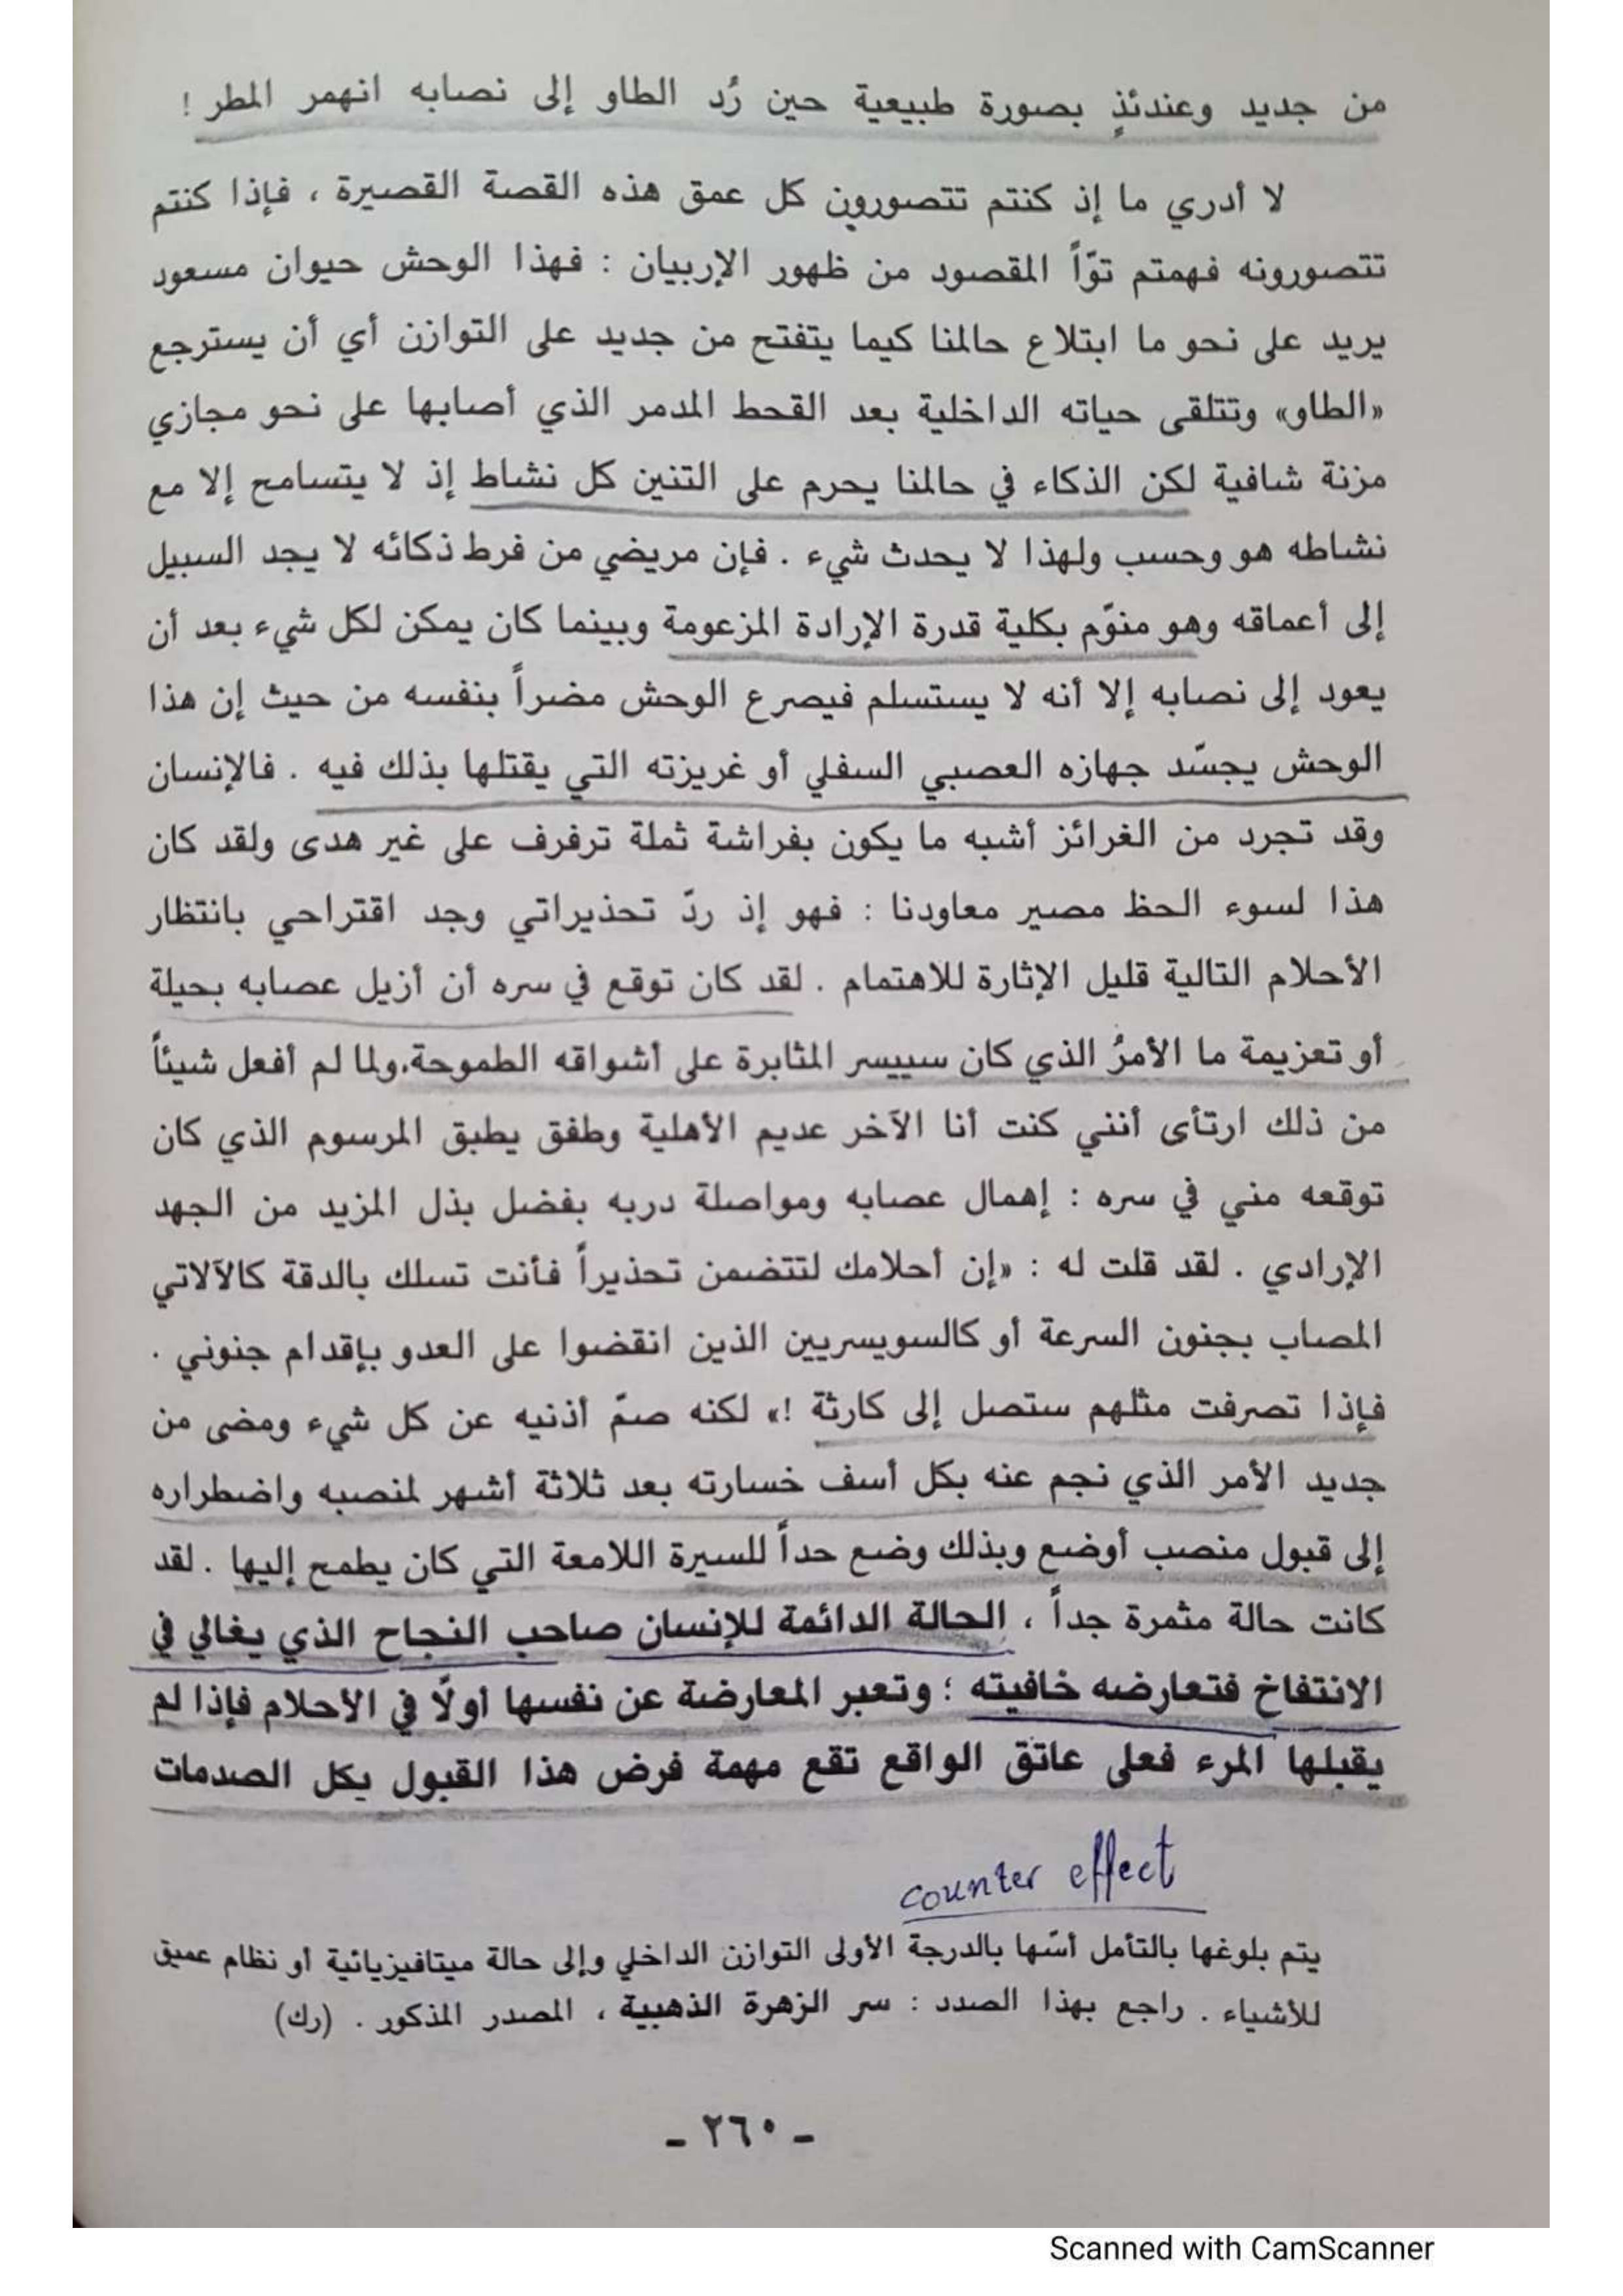 من جديد وعندئذٍ بصورة طبيعية حين رُد الطاو إلى نصابه انهمر المطر !
لا أدري ما إذ كنتم تتصورون كل عمق هذه القصة القصيرة ، فإذا كنتم
تتصورونه فهمتم توّاً المقصود من ظهور الإربيان : فهذا الوحش حيوان مسعود
يريد على نحو ما ابتلاع حالمنا كيما يتفتح من جديد على التوازن أي أن يسترجع
«الطاو» وتتلقى حياته الداخلية بعد القحط المدمر الذي أصابها على نحو مجازي
مزنة شافية لكن الذكاء في حالمنا يحرم على التنين كل نشاط إذ لا يتسامح إلا مع
نشاطه هو وحسب ولهذا لا يحدث شيء . فإن مريضي من فرط ذكائه لا يجد السبيل
إلى أعماقه وهو منوّم بكلية قدرة الإرادة المزعومة وبينما كان يمكن لكل شيء بعد أن
يعود إلى نصابه إلا أنه لا يستسلم فيصرع الوحش مضراً بنفسه من حيث إن هذا
الوحش يجسّد جهازه العصبي السفلي أو غريزته التي يقتلها بذلك فيه . فالإنسان
وقد تجرد من الغرائز أشبه ما يكون بفراشة ثملة ترفرف على غير هدى ولقد كان
هذا لسوء الحظ مصير معاودنا : فهو إذ ردّ تحذيراتي وجد اقتراحي بانتظار
الأحلام التالية قليل الإثارة للاهتمام . لقد كان توقع في سره أن أزيل عصابه بحيلة
أو تعزيمة ما الأمرُ الذي كان سييسر المثابرة على أشواقه الطموحة، ولما لم أفعل شيئاً
من ذلك ارتأى أنني كنت أنا الآخر عديم الأهلية وطفق يطبق المرسوم الذي كان
توقعه مني في سره : إهمال عصابه ومواصلة دربه بفضل بذل المزيد من الجهد
الإرادي . لقد قلت له : «إن أحلامك لتتضمن تحذيراً فأنت تسلك بالدقة كالآلاتي
المصاب بجنون السرعة أو كالسويسريين الذين انقضوا على العدو بإقدام جنوني .
فإذا تصرفت مثلهم ستصل إلى كارثة !» لكنه صمّ أذنيه عن كل شيء ومضى من
جديد الأمر الذي نجم عنه بكل أسف خسارته بعد ثلاثة أشهر لمنصبه واضطراره
إلى قبول منصب أوضع وبذلك وضع حداً للسيرة اللامعة التي كان يطمح إليها . لقد
كانت حالة مثمرة جداً ، الحالة الدائمة للإنسان صاحب النجاح الذي يغالي في
الانتفاخ فتعارضه خافيته ؛ وتعبر المعارضة عن نفسها أولًا في الأحلام فإذا لم
يقبلها المرء فعلى عاتق الواقع تقع مهمة فرض هذا القبول بكل الصدمات
counter effect
يتم بلوغها بالتأمل أسّها بالدرجة الأولى التوازن الداخلي وإلى حالة ميتافيزيائية أو نظام عميق
للأشياء . راجع بهذا الصدد : سر الزهرة الذهبية ، المصدر المذكور . (رك)
- ٢٦٠ -
Scanned with CamScanner